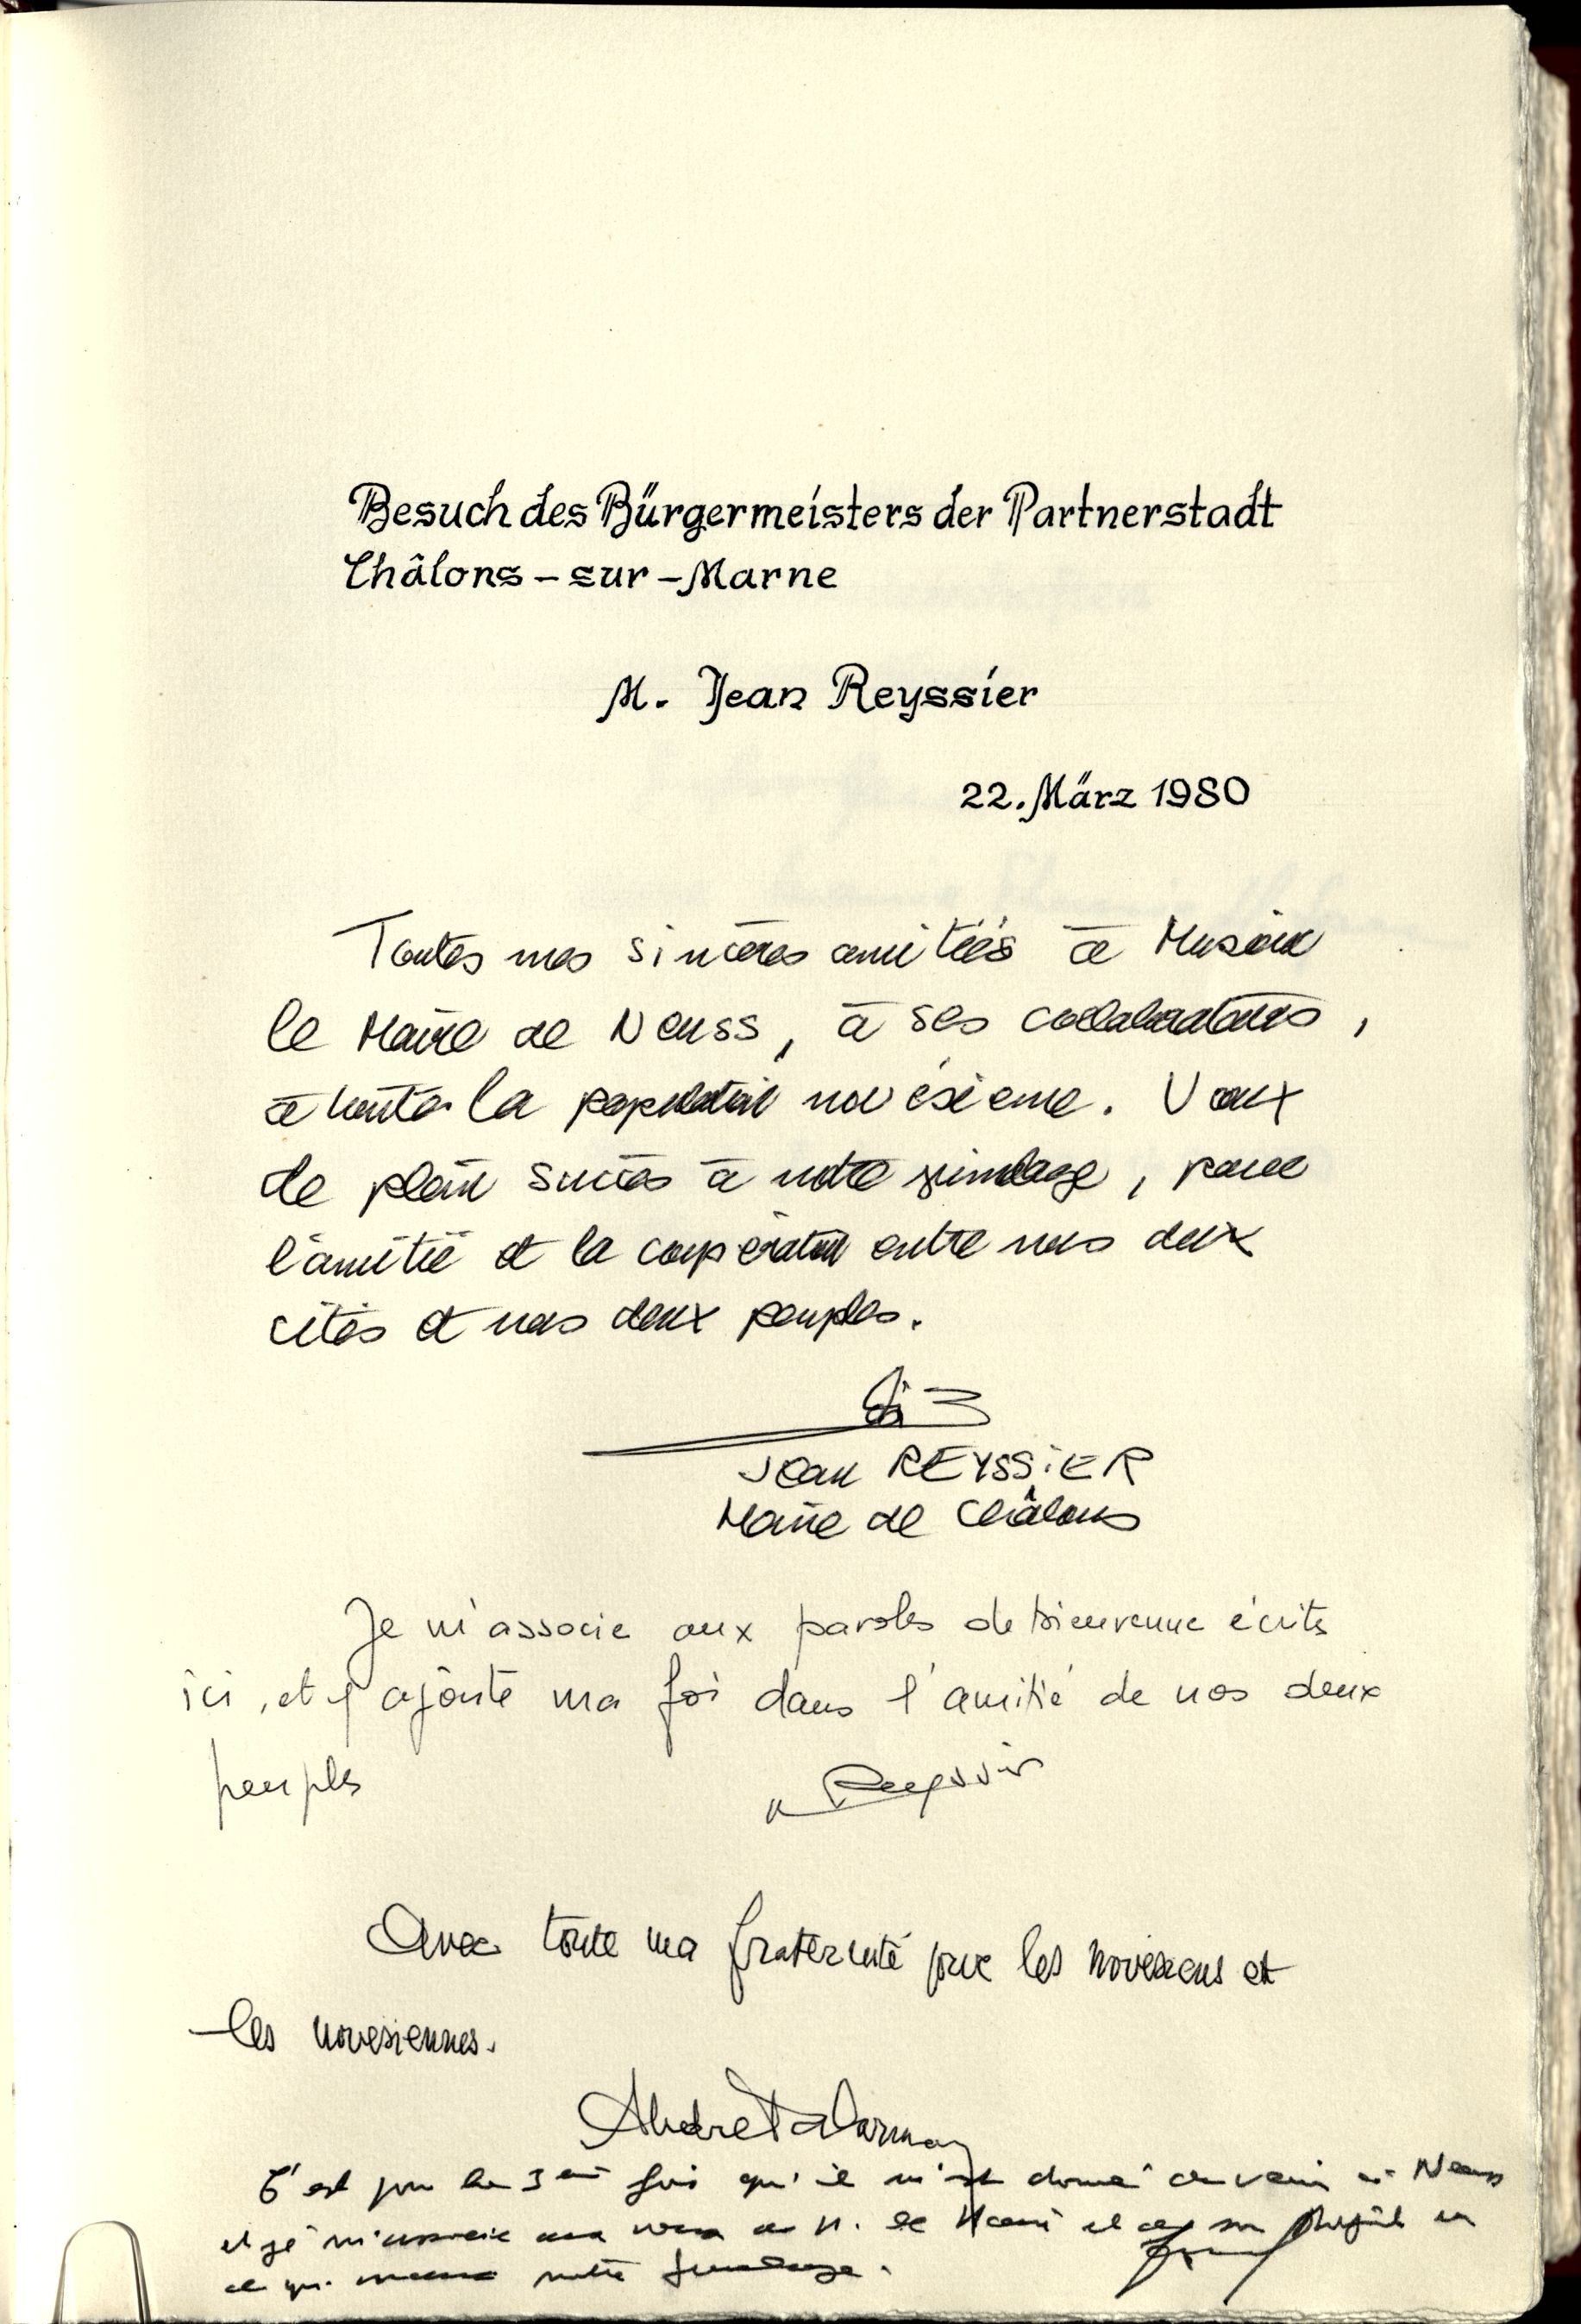 Besuch des Bürgermeisters der Partnerstadt
Châlons-sur-Marne
M. Jean Reyssier
22. März 1980
Toutes mes sincères amitiés à Monsieur
le Maire de Neuss, à ses collaborateurs,
à toute la population novésienne. Vœux
de plein succès à notre jumelage, pour
l'amitié et la coopération entre nos deux
cités et nos deux peuples.
Jean REYSSiER
Maire de Châlons
Je m'associe aux paroles de bienvenue écrites
ici, et j'ajoute ma foi dans l'amitié de nos deux
peuples
Reyssier
Avec toute ma fraternité pour les novesiens et
les novesiennes.
C'est pour la 3ème fois qu'il m'est donné de venir à Neuss
et je m'associe aux vœux de M. le Maire et de son
ce qui notre jumelage.